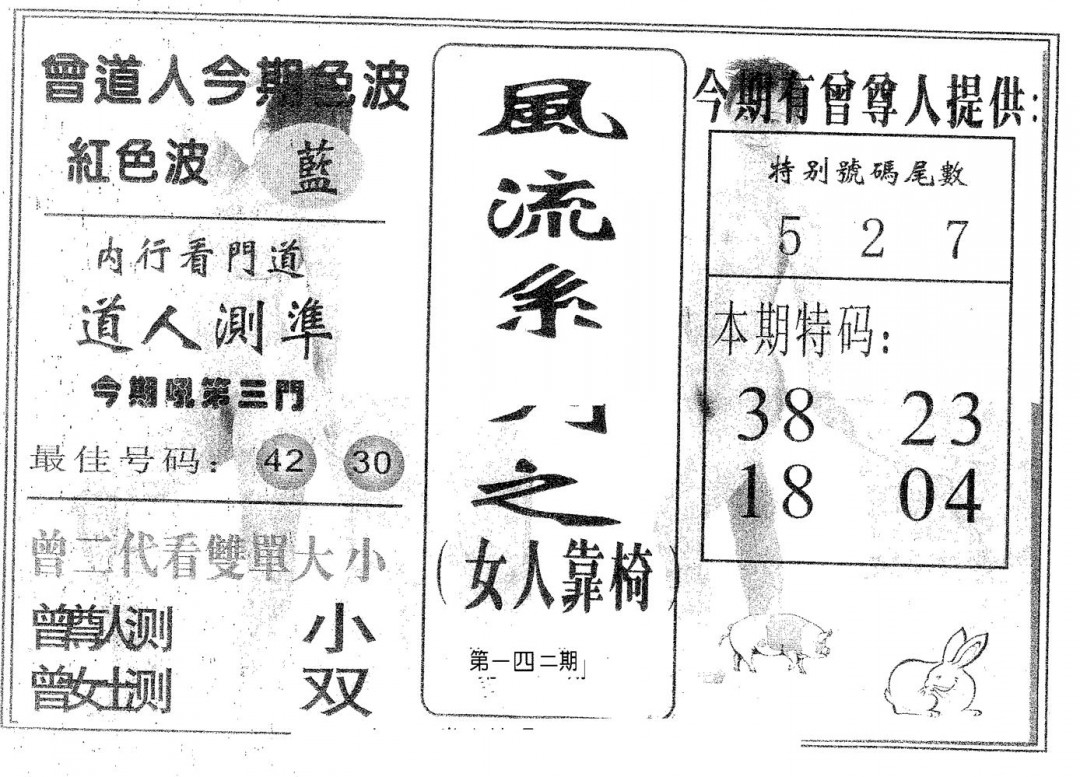 曾道人今期色波
紅色波 藍
内行看門道
道人測準
今期吼第三門
最佳号码： 42 30
曾二代看雙單大小
曾尊人测 小
曾女士测 双
風流系
之
（女人靠椅）
第一四二期
今期有曾尊人提供：
特别號碼尾數
5 2 7
本期特码：
38 23
18 04